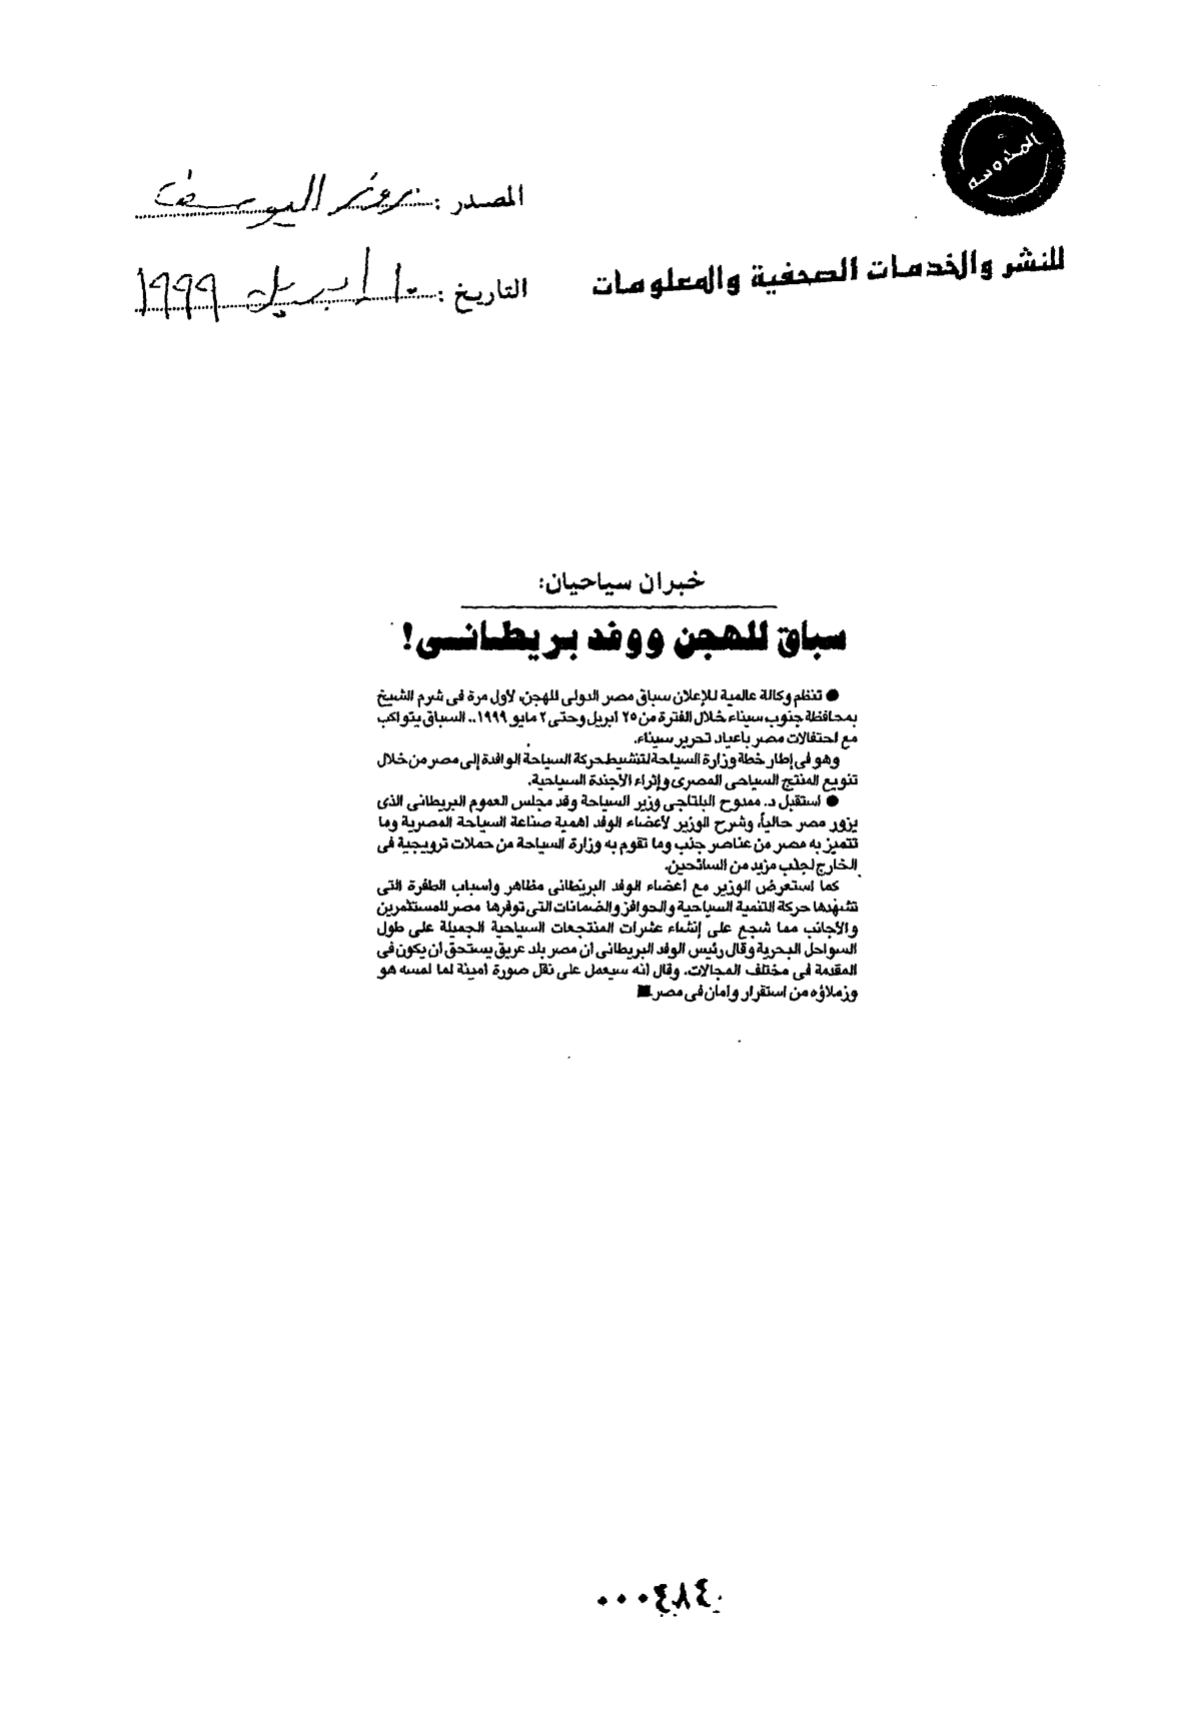 المحروسة
للنشر والخدمات الصحفية والمعلومات
المصدر : روز اليوسف
التاريخ : ١٠ ابريل ١٩٩٩
خبران سياحيان:
سباق للهجن ووفد بريطانى!
● تنظم وكالة عالمية للإعلان سباق مصر الدولى للهجن، لأول مرة فى شرم الشيخ
بمحافظة جنوب سيناء خلال الفترة من ٢٥ ابريل وحتى ٢ مايو ١٩٩٩.. السباق يتواكب
مع احتفالات مصر باعياد تحرير سيناء.
وهو فى إطار خطة وزارة السياحة لتنشيط حركة السياحة الوافدة إلى مصر من خلال
تنويع المنتج السياحى المصرى وإثراء الأجندة السياحية.
● استقبل د. ممدوح البلتاجى وزير السياحة وفد مجلس العموم البريطانى الذى
يزور مصر حالياً، وشرح الوزير لأعضاء الوفد اهمية صناعة السياحة المصرية وما
تتميز به مصر من عناصر جذب وما تقوم به وزارة السياحة من حملات ترويجية فى
الخارج لجذب مزيد من السائحين.
كما استعرض الوزير مع اعضاء الوفد البريطانى مظاهر وأسباب الطفرة التى
تشهدها حركة التنمية السياحية والحوافز والضمانات التى توفرها مصر للمستثمرين
والأجانب مما شجع على إنشاء عشرات المنتجعات السياحية الجميلة على طول
السواحل البحرية وقال رئيس الوفد البريطانى أن مصر بلد عريق يستحق أن يكون فى
المقدمة فى مختلف المجالات. وقال إنه سيعمل على نقل صورة أمينة لما لمسه هو
وزملاؤه من استقرار وامان فى مصر.■